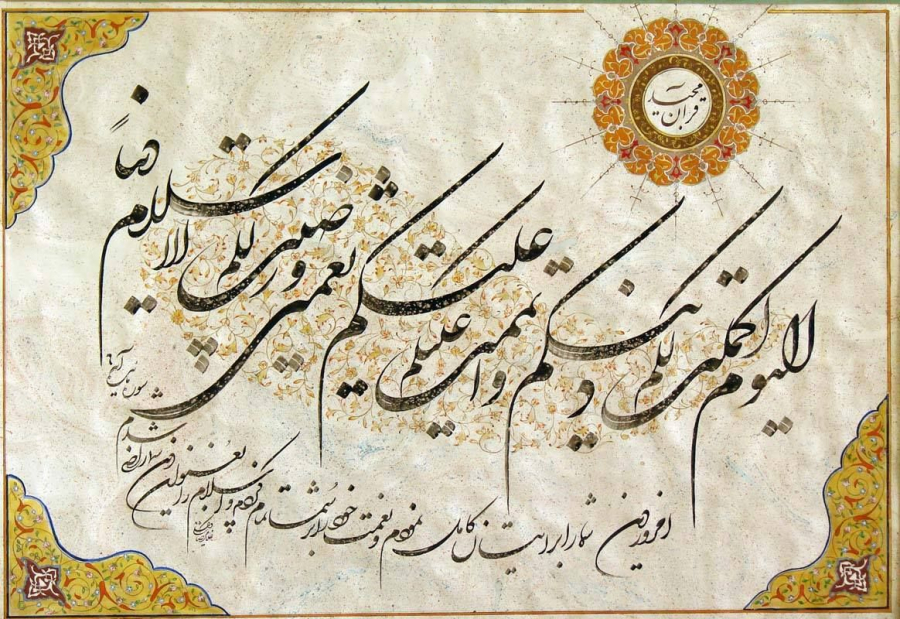 قرآن مجید
الیوم اکملت لکم دینکم و اتممت علیکم علیکم نعمتی و رضیت لکم الاسلام دیناً
امروز دین شما را برایتان کامل نمودم و نعمت خود را بر شما تمام کردم و اسلام را بعنوان دین شما راضی شدم
سوره آیه